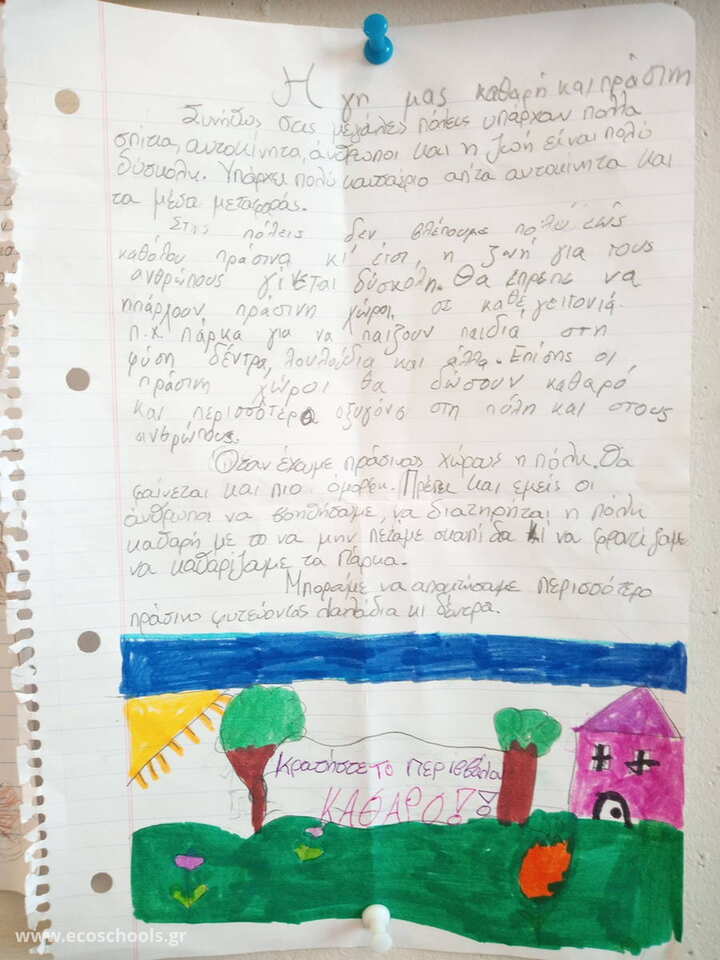 Η γη μας καθαρή και πράσινη
Συνήθως στις μεγάλες πόλεις υπάρχουν πολλά
σπίτια, αυτοκίνητα, άνθρωποι και η ζωή είναι πολύ
δύσκολη. Υπάρχει πολύ καυσαέριο απ'τα αυτοκίνητα και
τα μέσα μεταφοράς.
Στις πόλεις δεν βλέπουμε πολύ έως
καθόλου πράσινο κι' έτσι, η ζωή για τους
ανθρώπους γίνεται δύσκολη. Θα έπρεπε να
ηπάρχουν πράσινη χώροι σε κάθε γειτονιά.
π.χ. πάρκα για να παίζουν παιδιά στη
φύση δέντρα, λουλούδια και άλλα. Επίσης οι
πράσινη χώροι θα δώσουν καθαρό
και περισσότερο οξυγόνο στη πόλη και στους
ανθρώπους.
Όταν έχουμε πράσινους χώρους η πόλη. Θα
φαίνεται και πιο όμορφη. Πρέπει και εμείς οι
άνθρωποι να βοηθήσαμε, να διατηρήται η πόλη
καθαρή με το να μην πετάμε σκουπίδα κι να φροντίζαμε
να καθαρίζαμε τα πάρκα.
Μποράμε να αποκτώσαμε περισσότερο
πράσινο φυτεύοντας κι δέντρα.
Κρατήστε το περιβάλο
ΚΑΘΑΡΟ!!
www.ecoschools.gr